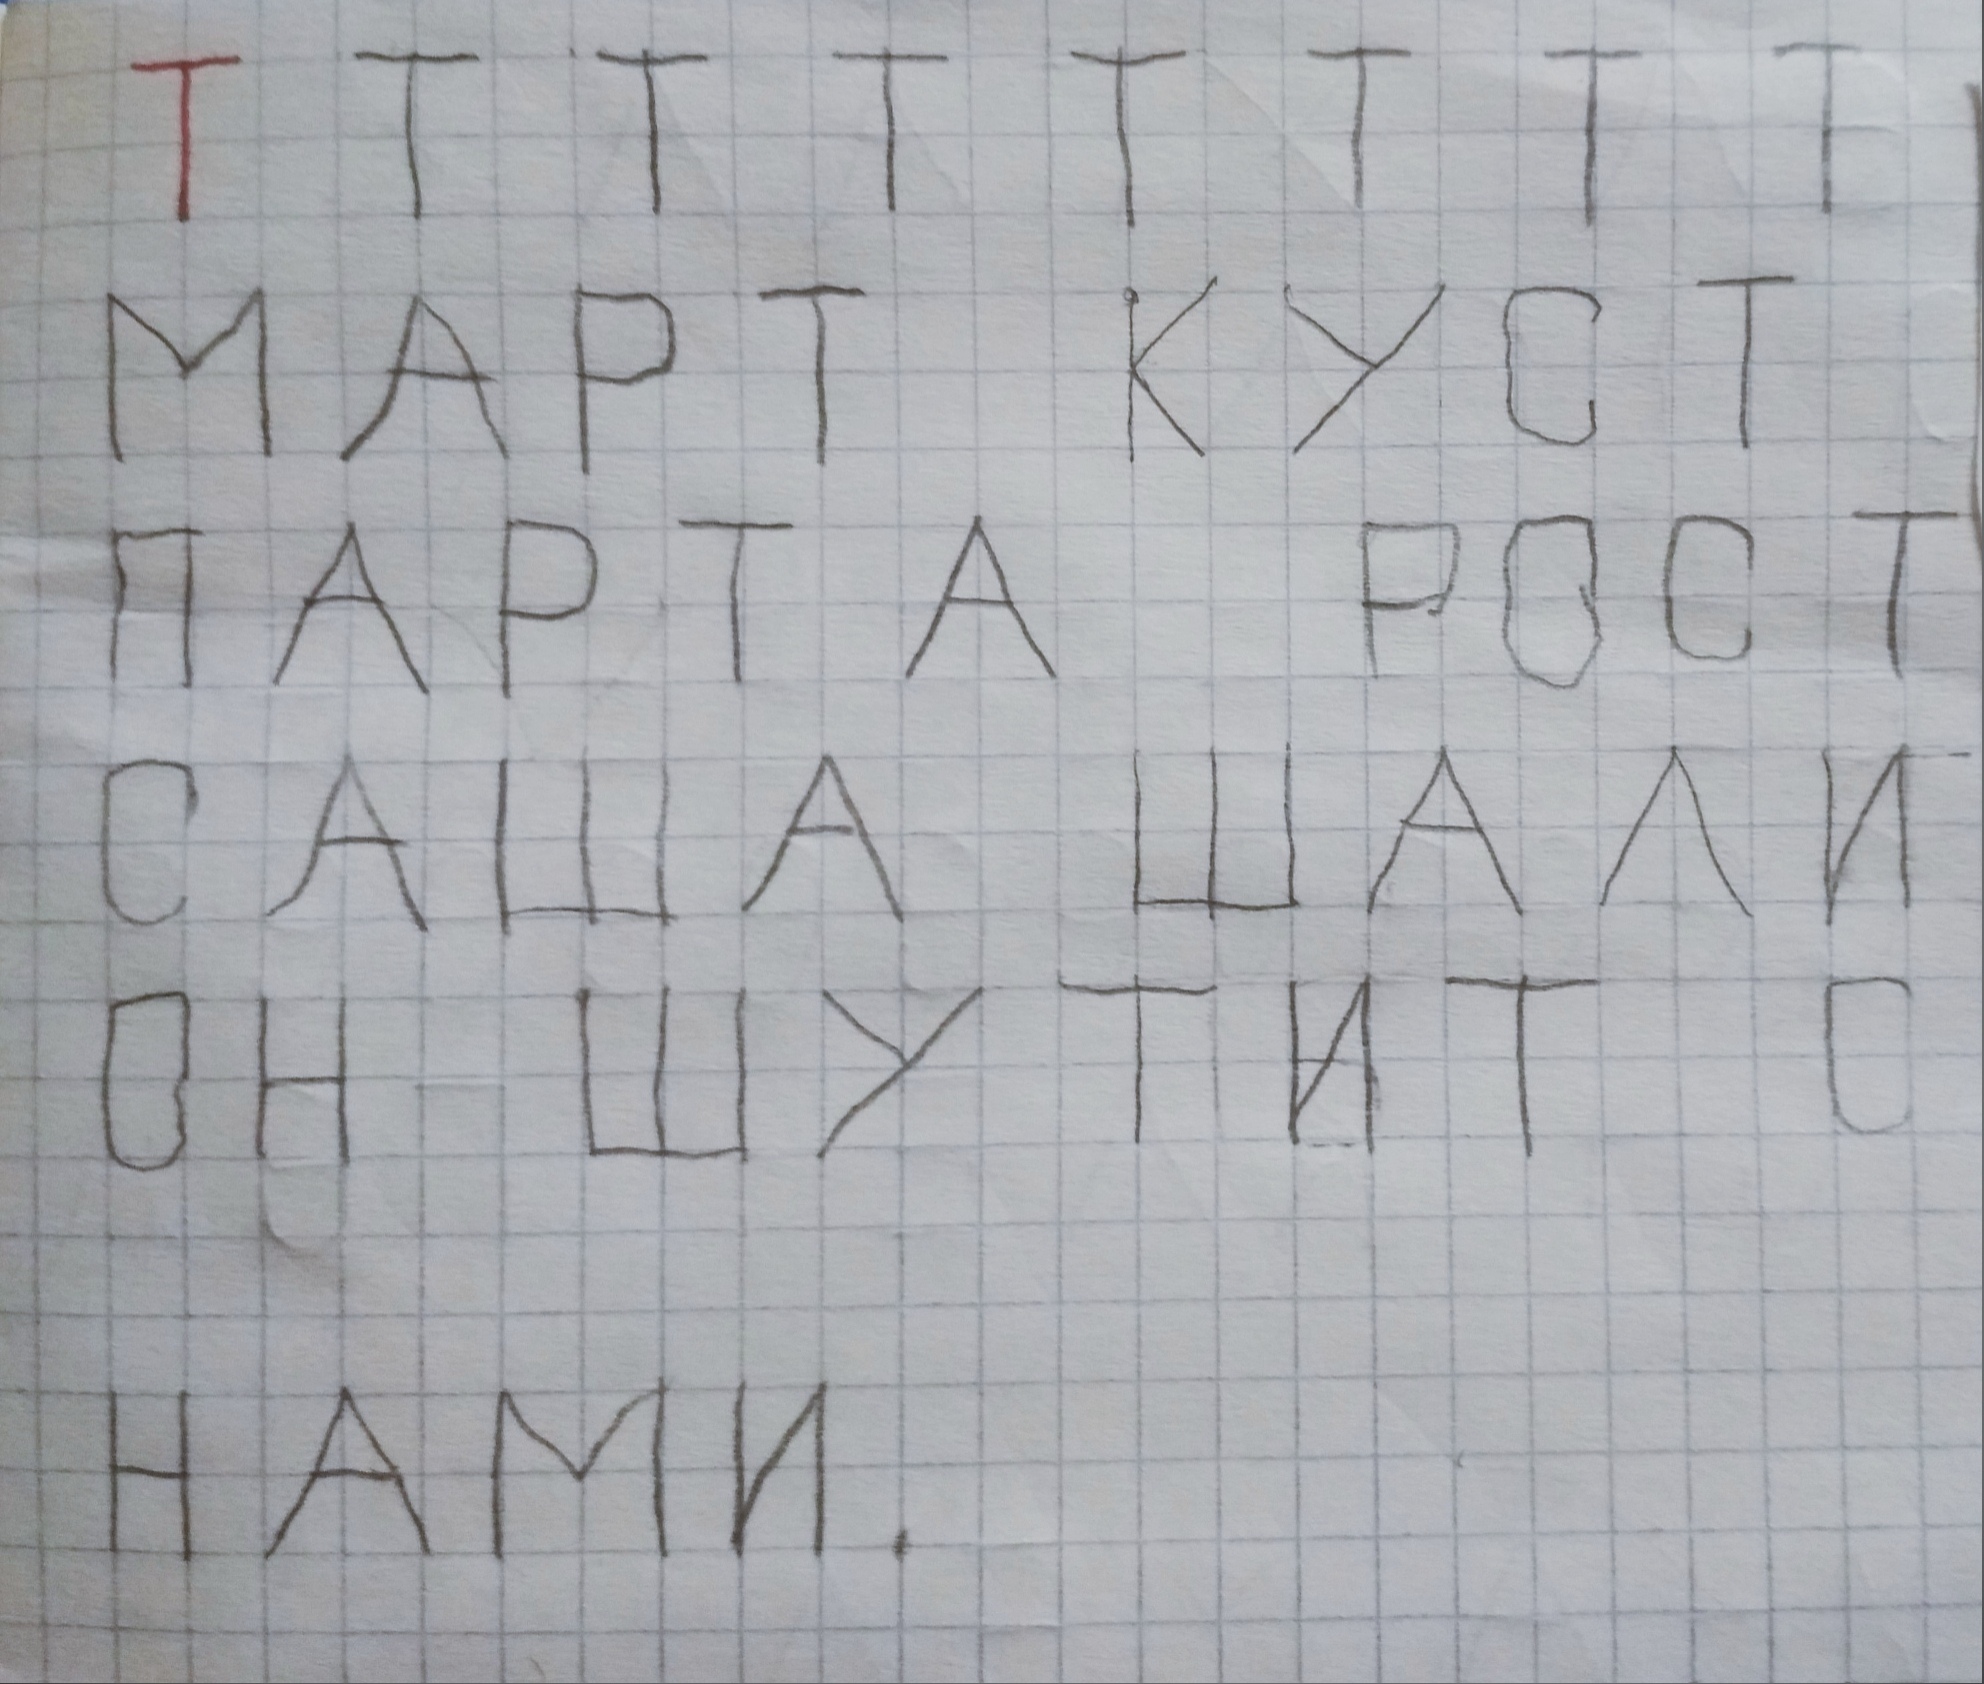 Т Т Т Т Т Т Т Т
МАРТ КУСТ
ПАРТА РОСТ
САША ШАЛИ
ОН ШУТИТ С
НАМИ.